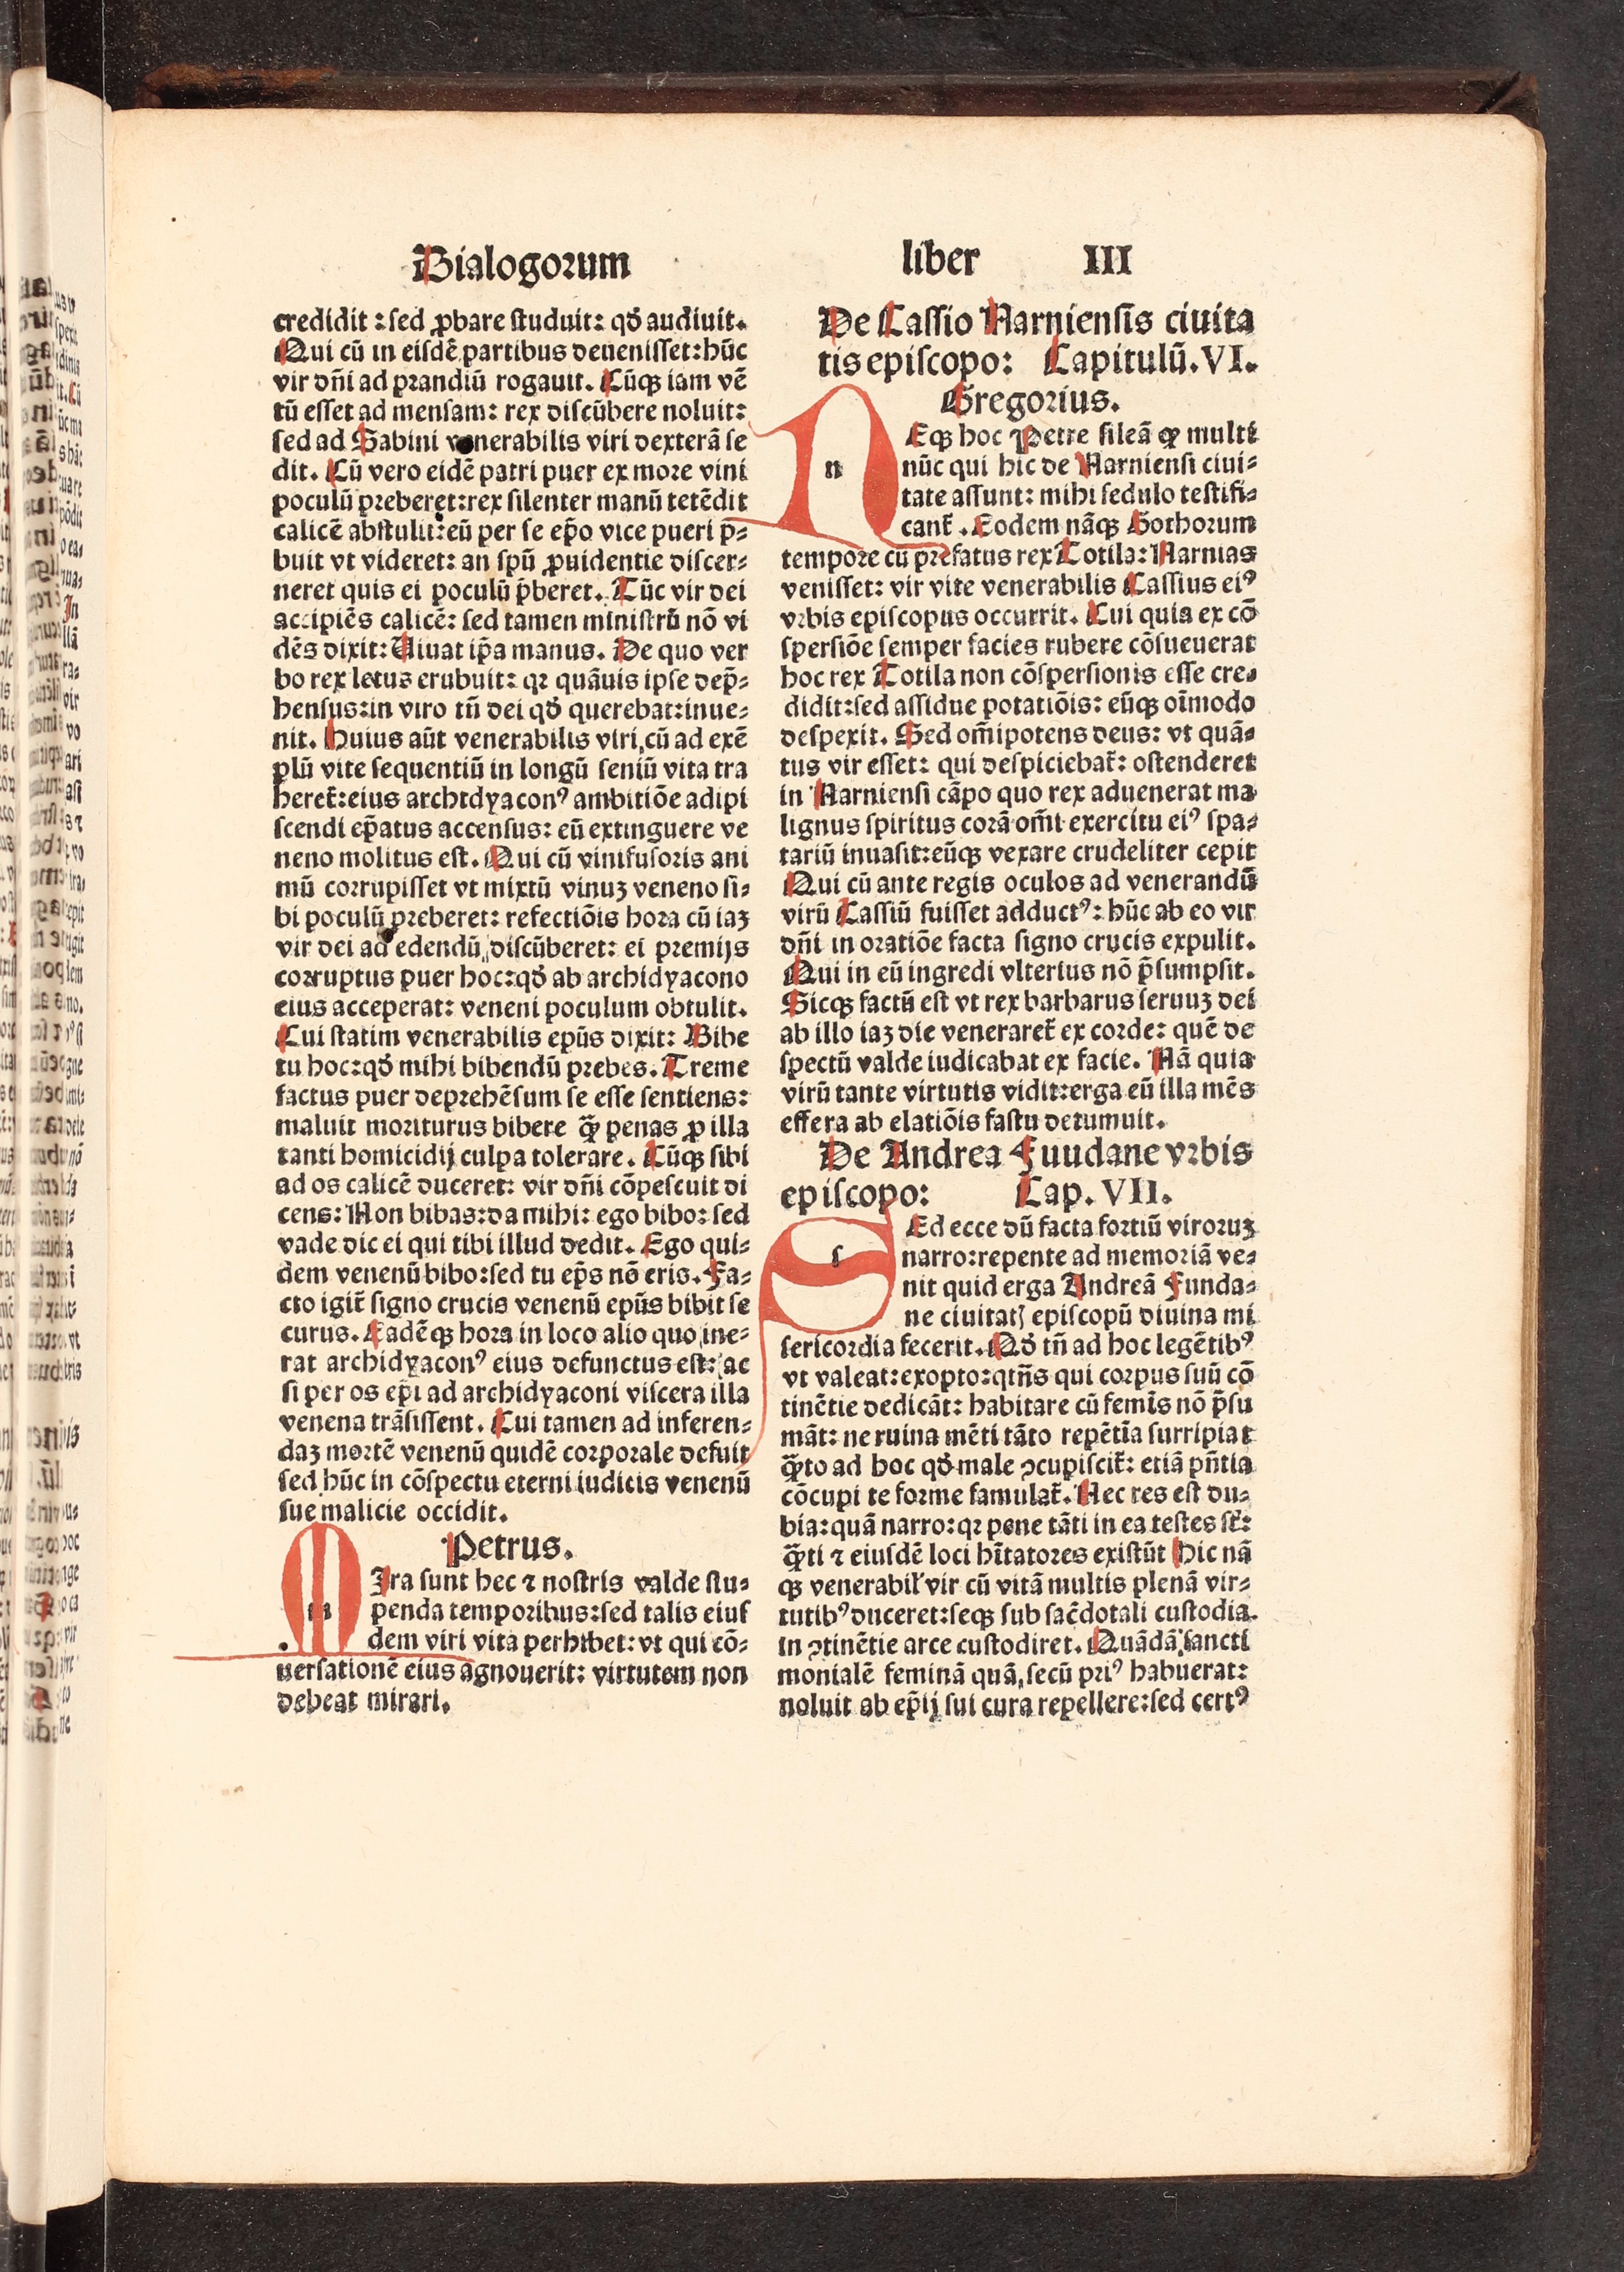 Dialogorum liber III
credidit : sed ꝓbare studuit: qđ audiuit.
Qui cū in eisdē partibus deuenisset: hūc
vir dn̄i ad prandiū rogauit. Cūqꝫ iam vē
tū esset ad mensam: rex discūbere noluit:
sed ad Sabini venerabilis viri dexterā se
dit. Cū vero eidē patri puer ex more vini
poculū preberet: rex silenter manū tetēdit
calicē abstulit: eū per se ep̄o vice pueri p̄⸗
buit vt videret: an spū ꝓuidentie discer⸗
neret quis ei poculū p̄beret. Tūc vir dei
accipiēs calicē: sed tamen ministrū nō vi
dēs dixit: Uiuat ip̄a manus. De quo ver
bo rex letus erubuit: qꝛ quāuis ipse dep̄⸗
hensus: in viro tn̄ dei qđ querebat: inue⸗
nit. Huius aūt venerabilis viri, cū ad exē
plū vite sequentiū in longū seniū vita tra
heret᷑: eius archidyaconꝰ ambitiōe adipi
scendi ep̄atus accensus: eū extinguere ve
neno molitus est. Qui cū vinifusoris ani
mū corrupisset vt mixtū vinuꝫ veneno si⸗
bi poculū preberet: refectiōis hora cū iaꝫ
vir dei ad edendū discūberet: ei premijs
corruptus puer hoc: qđ ab archidyacono
eius acceperat: veneni poculum obtulit.
Cui statim venerabilis epūs dixit: Bibe
tu hoc: qđ mihi bibendū prebes. Treme
factus puer deprehēsum se esse sentiens:
maluit moriturus bibere q̄ꝫ penas ꝓ illa
tanti homicidij culpa tolerare. Cūqꝫ sibi
ad os calicē duceret: vir dn̄i cōpescuit di
cens: Non bibas: da mihi: ego bibo: sed
vade dic ei qui tibi illud dedit. Ego qui⸗
dem venenū bibo: sed tu ep̄s nō eris. Fa⸗
cto igit᷑ signo crucis venenū epūs bibit se
curus. Eadēqꝫ hora in loco alio quo ine⸗
rat archidyaconꝰ eius defunctus est: ac
si per os ep̄i ad archidyaconi viscera illa
venena trāsissent. Cui tamen ad inferen⸗
daꝫ mortē venenū quidē corporale defuit
sed hūc in cōspectu eterni iudicis venenū
sue malicie occidit.
Petrus.
mIra sunt hec ⁊ nostris valde stu⸗
penda temporibus: sed talis eius
dem viri vita perhibet: vt qui cō⸗
uersationē eius agnouerit: virtutem non
debeat mirari.
De Cassio Narniensis ciuita
tis episcopo: Capitulū. VI.
Gregorius.
nEqꝫ hoc Petre sileā qꝫ multi
nūc qui hic de Narniensi ciui⸗
tate assunt: mihi sedulo testifi⸗
cant᷑. Eodem nāqꝫ Gothorum
tempore cū prefatus rex Totila: Narnias
venisset: vir vite venerabilis Cassius eiꝰ
vrbis episcopus occurrit. Cui quia ex cō
spersiōe semper facies rubere cōsueuerat
hoc rex Totila non cōspersionis esse cre⸗
didit: sed assidue potatiōis: eūqꝫ oīmodo
despexit. Sed om̄ipotens deus: vt quā⸗
tus vir esset: qui despiciebat᷑: ostenderet
in Narniensi cāpo quo rex aduenerat ma
lignus spiritus corā om̄i exercitu eiꝰ spa⸗
tariū inuasit: eūqꝫ vexare crudeliter cepit
Qui cū ante regis oculos ad venerandū
virū Cassiū fuisset adductꝰ: hūc ab eo vir
dn̄i in oratiōe facta signo crucis expulit.
Qui in eū ingredi vlterius nō p̄sumpsit.
Sicqꝫ factū est vt rex barbarus seruuꝫ dei
ab illo iaꝫ die veneraret᷑ ex corde: quē de
spectū valde iudicabat ex facie. Nā quia
virū tante virtutis vidit: erga eū illa mēs
effera ab elatiōis fastu detumuit.
De Andrea Fuudane vrbis
episcopo: Cap. VII.
sEd ecce dū facta fortiū viroruꝫ
narro: repente ad memoriā ve⸗
nit quid erga Andreā Funda⸗
ne ciuitatꝭ episcopū diuina mi
sericordia fecerit. Qđ tn̄ ad hoc legētibꝰ
vt valeat: exopto: qtn̄s qui corpus suū cō
tinētie dedicāt: habitare cū femīs nō p̄su
māt: ne ruina mēti tāto repētīa surripiat
q̄ꝫto ad hoc qđ male ↄcupiscit᷑: etiā pn̄tia
cōcupi te forme famulat᷑. Nec res est du⸗
bia: quā narro: qꝛ pene tāti in ea testes st᷑:
q̄ꝫti ⁊ eiusdē loci hītatores existūt Hic nā
qꝫ venerabil̓ vir cū vitā multis plenā vir⸗
tutibꝰ duceret: seqꝫ sub sac̄dotali custodia.
in ↄtinētie arce custodiret. Quādā sancti
monialē feminā quā secū priꝰ habuerat:
noluit ab ep̄ij sui cura repellere: sed certꝰ